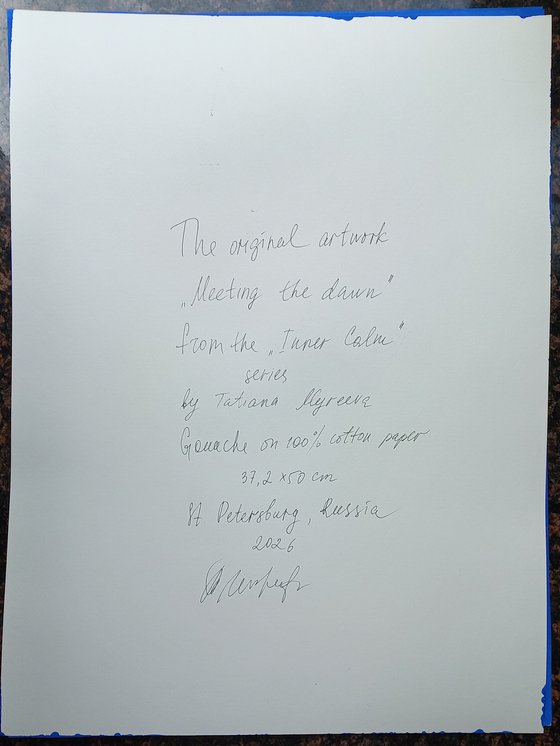 The original artwork
„Meeting the dawn"
from the „Inner Calm"
series
by Tatiana Myreeva
Gouache on 100% cotton paper
37,2 x 50 cm
St Petersburg, Russia
2026